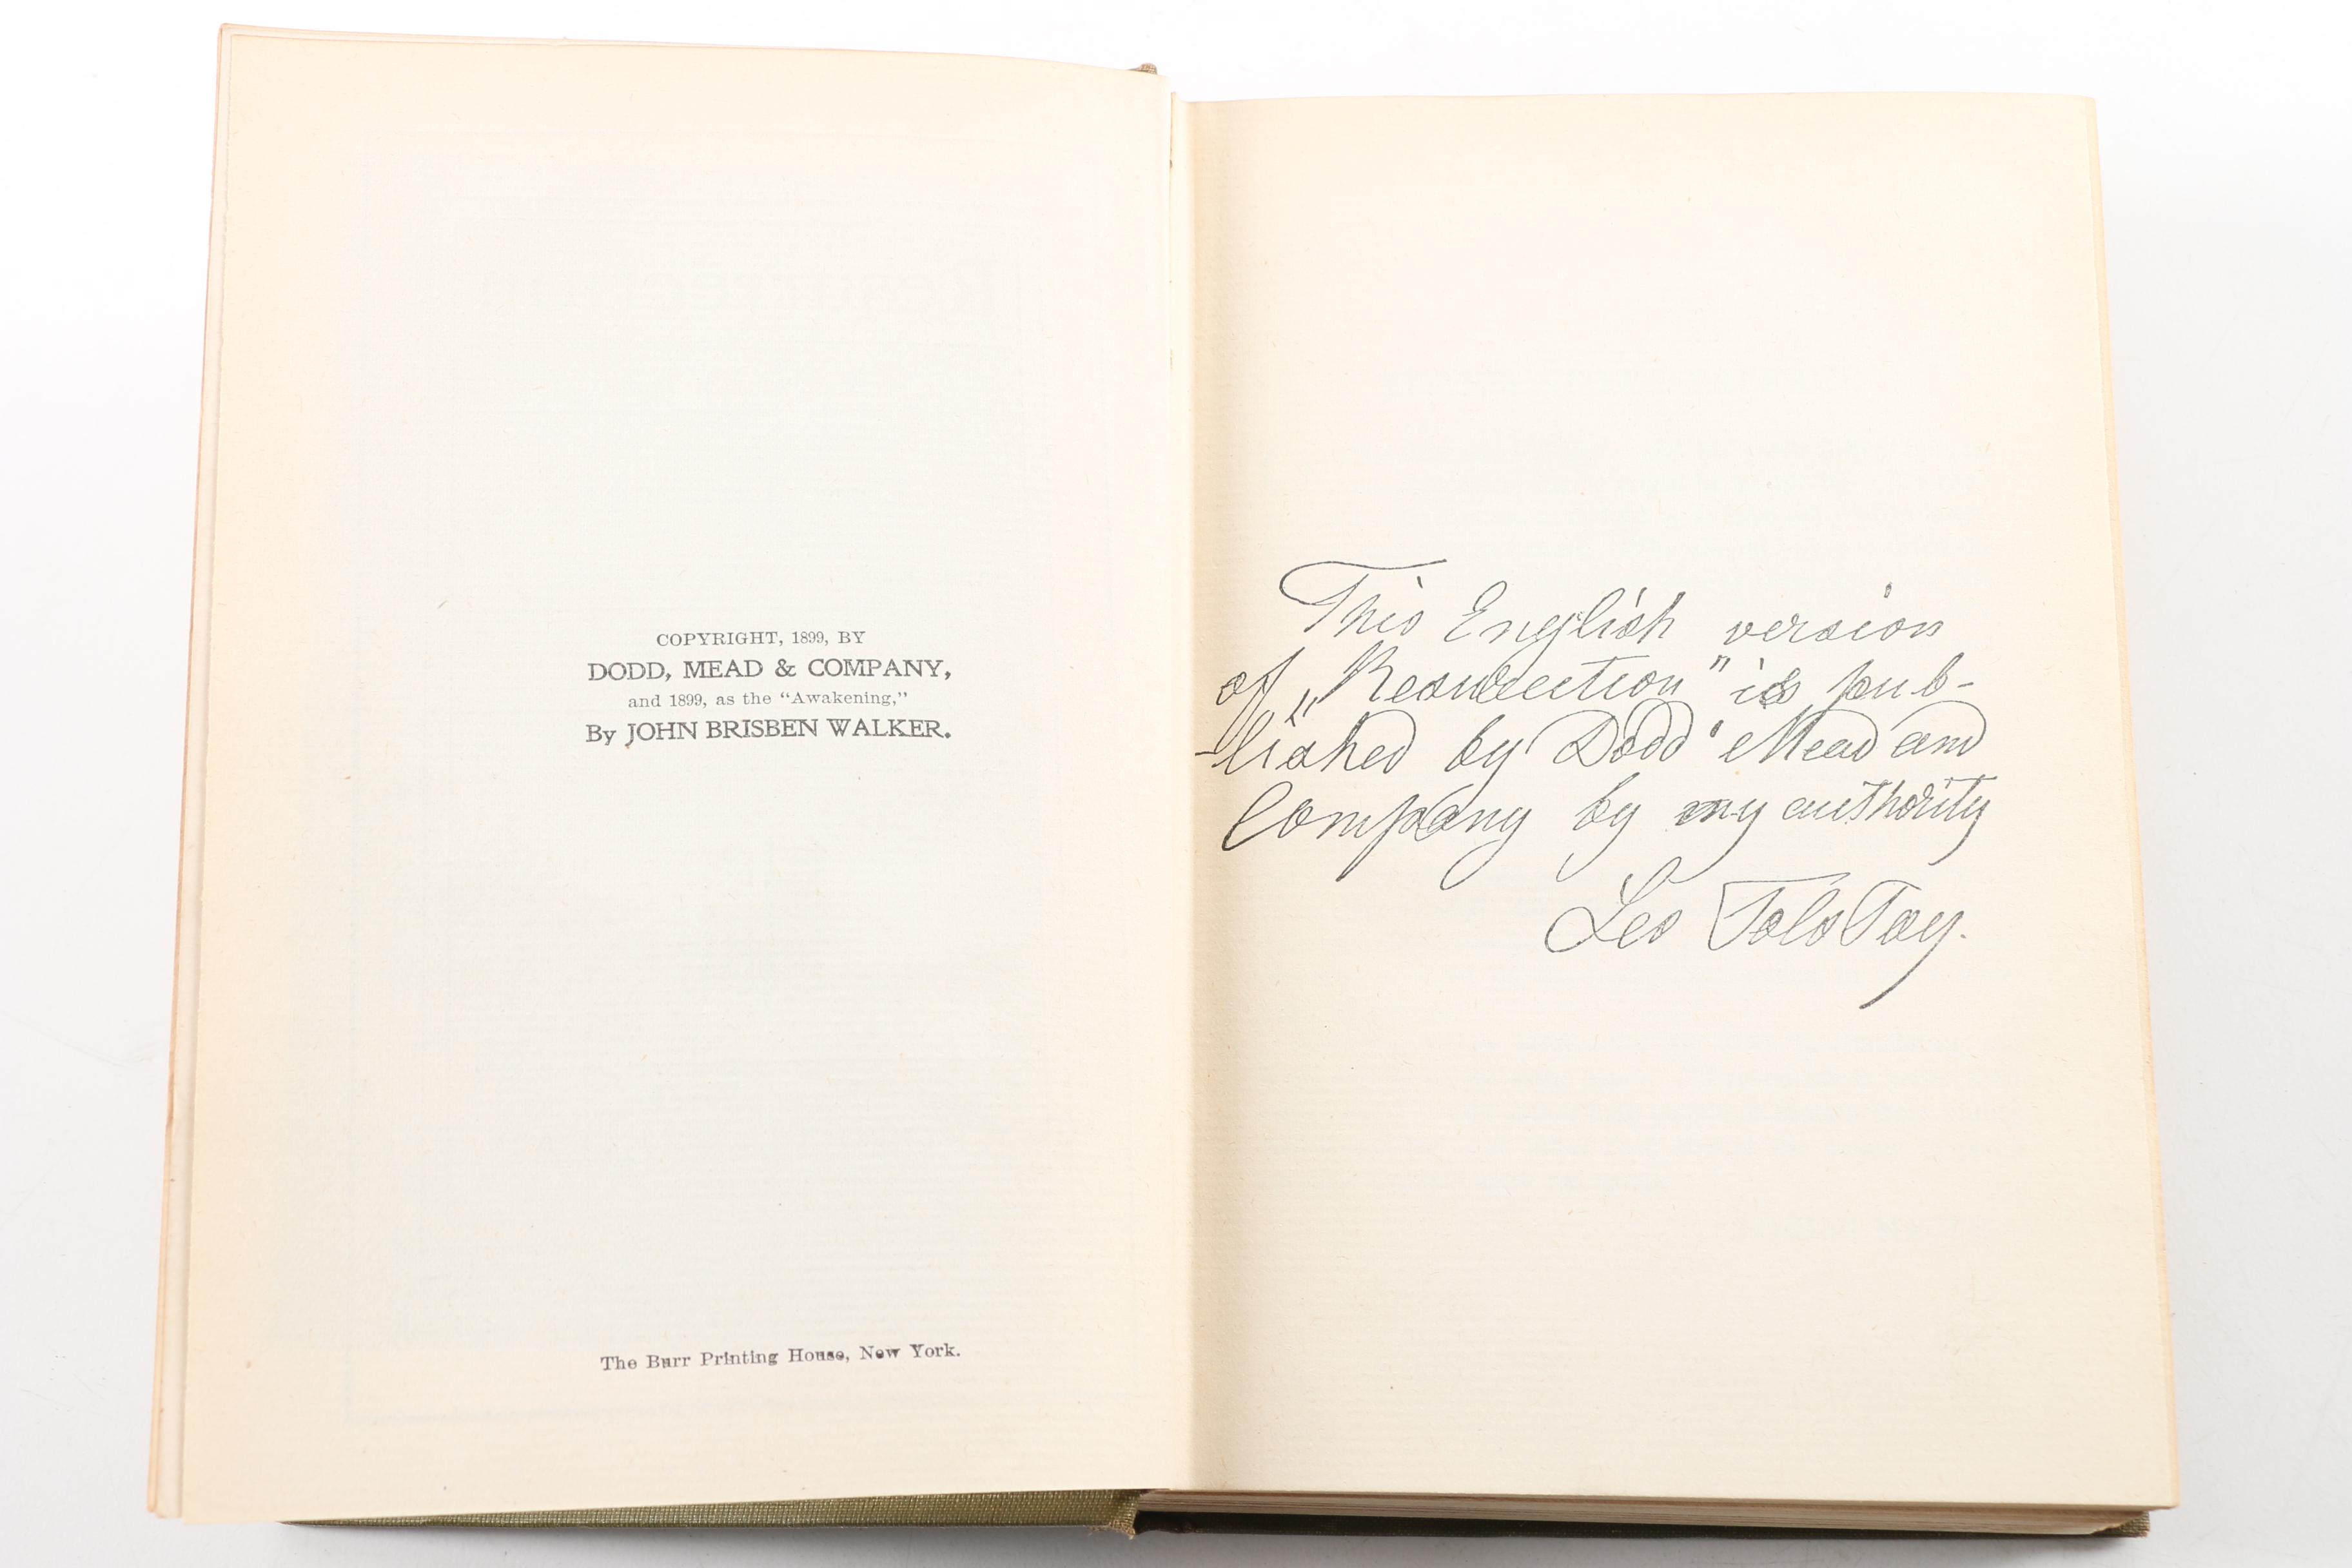 COPYRIGHT, 1899, BY
DODD, MEAD & COMPANY,
and 1899, as the “Awakening,”
By JOHN BRISBEN WALKER.
The Burr Printing House, New York.
This English version
of „Resurrection” is pub-
-lished by Dodd' Mead and
Company by my authority
Leo Tolstoy.